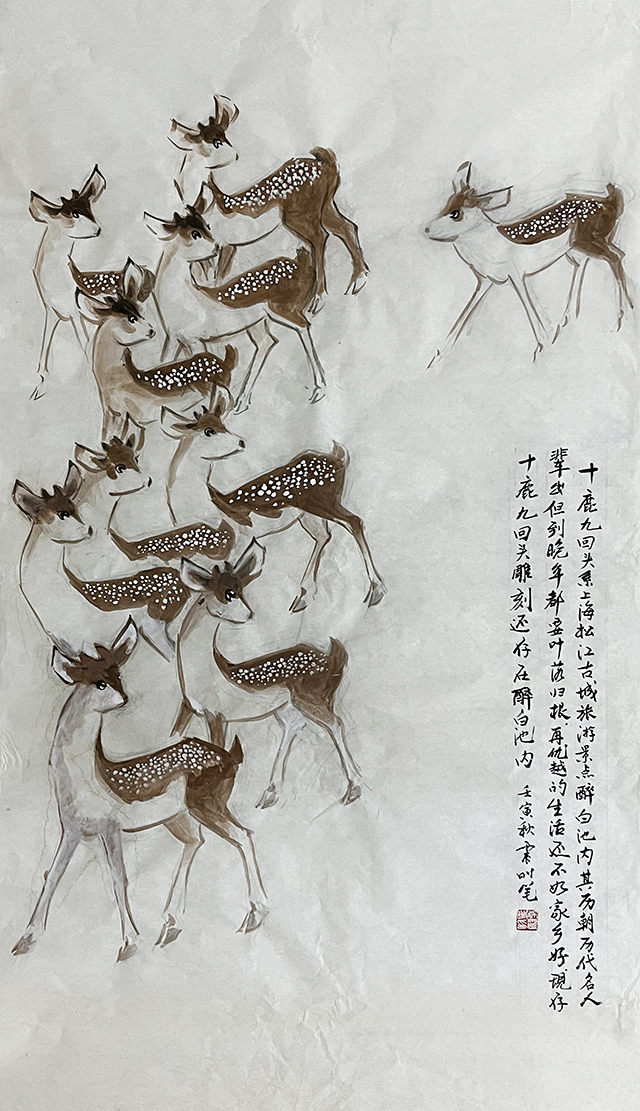 十鹿九回头系上海松江古城旅游景点醉白池内其历朝历代名人
辈出但到晚年都要叶落归根再优越的生活还不如家乡好现存
十鹿九回头雕刻还存在醉白池内 壬寅秋 笔